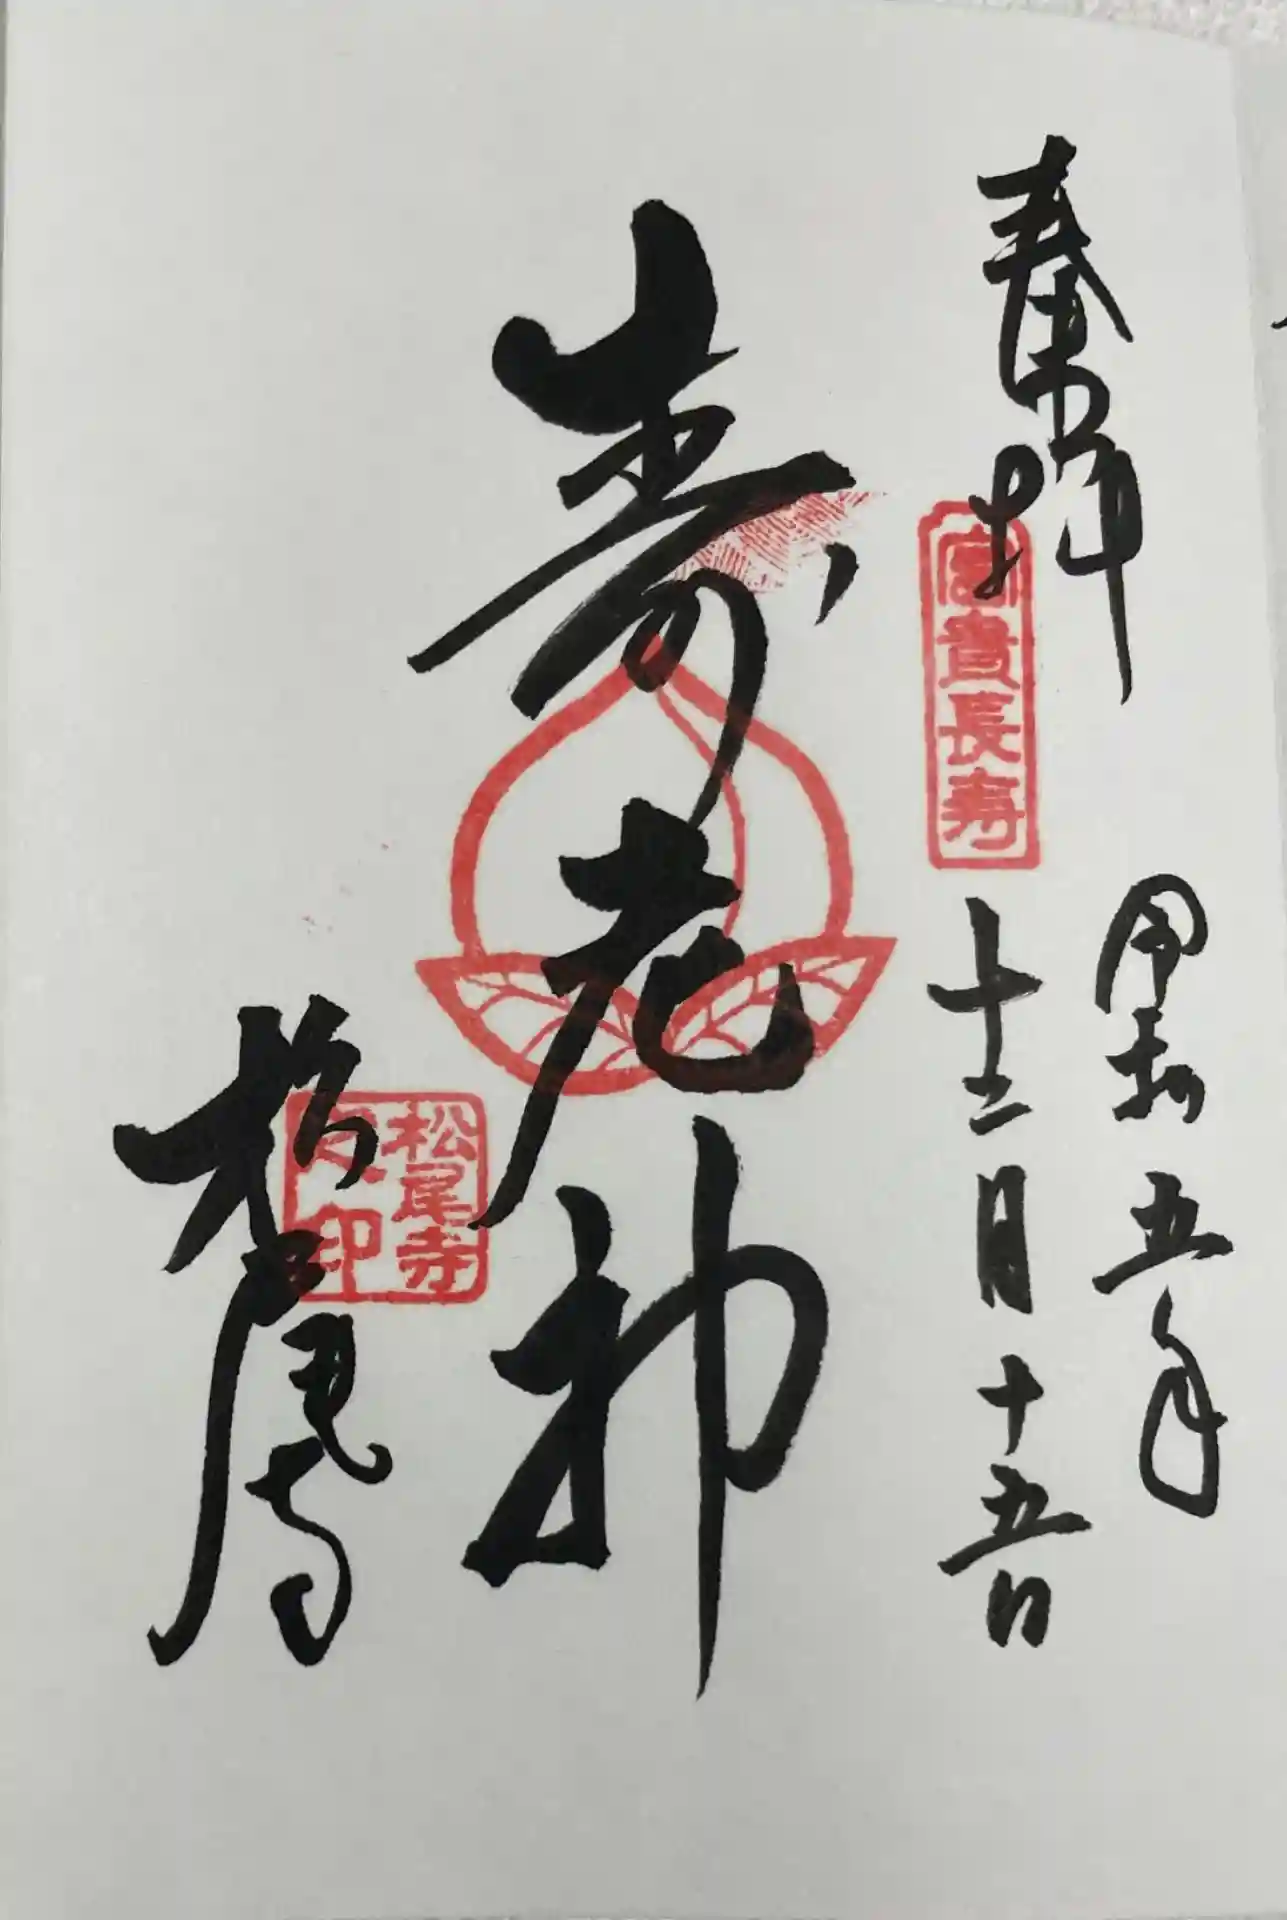 奉拝
富貴長寿
令和五年
十二月十五日
寿老神
松尾寺
之印
松尾寺